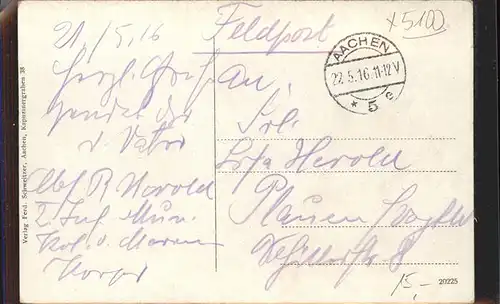 21./5.16
Feldpost
x 5100
AACHEN
22.5.16.11-12V
* 5 e
Herzl. Gruß
sendet dir
d. Vater
An
Frl.
Herold
Plauen Vogtl.
Schillerstr. 8
Abs. R. Herold
Inf. Mun.
Kol.
Korps
15,-
20225
Verlag Ferd. Schweitzer, Aachen, Kapuzinergraben 38